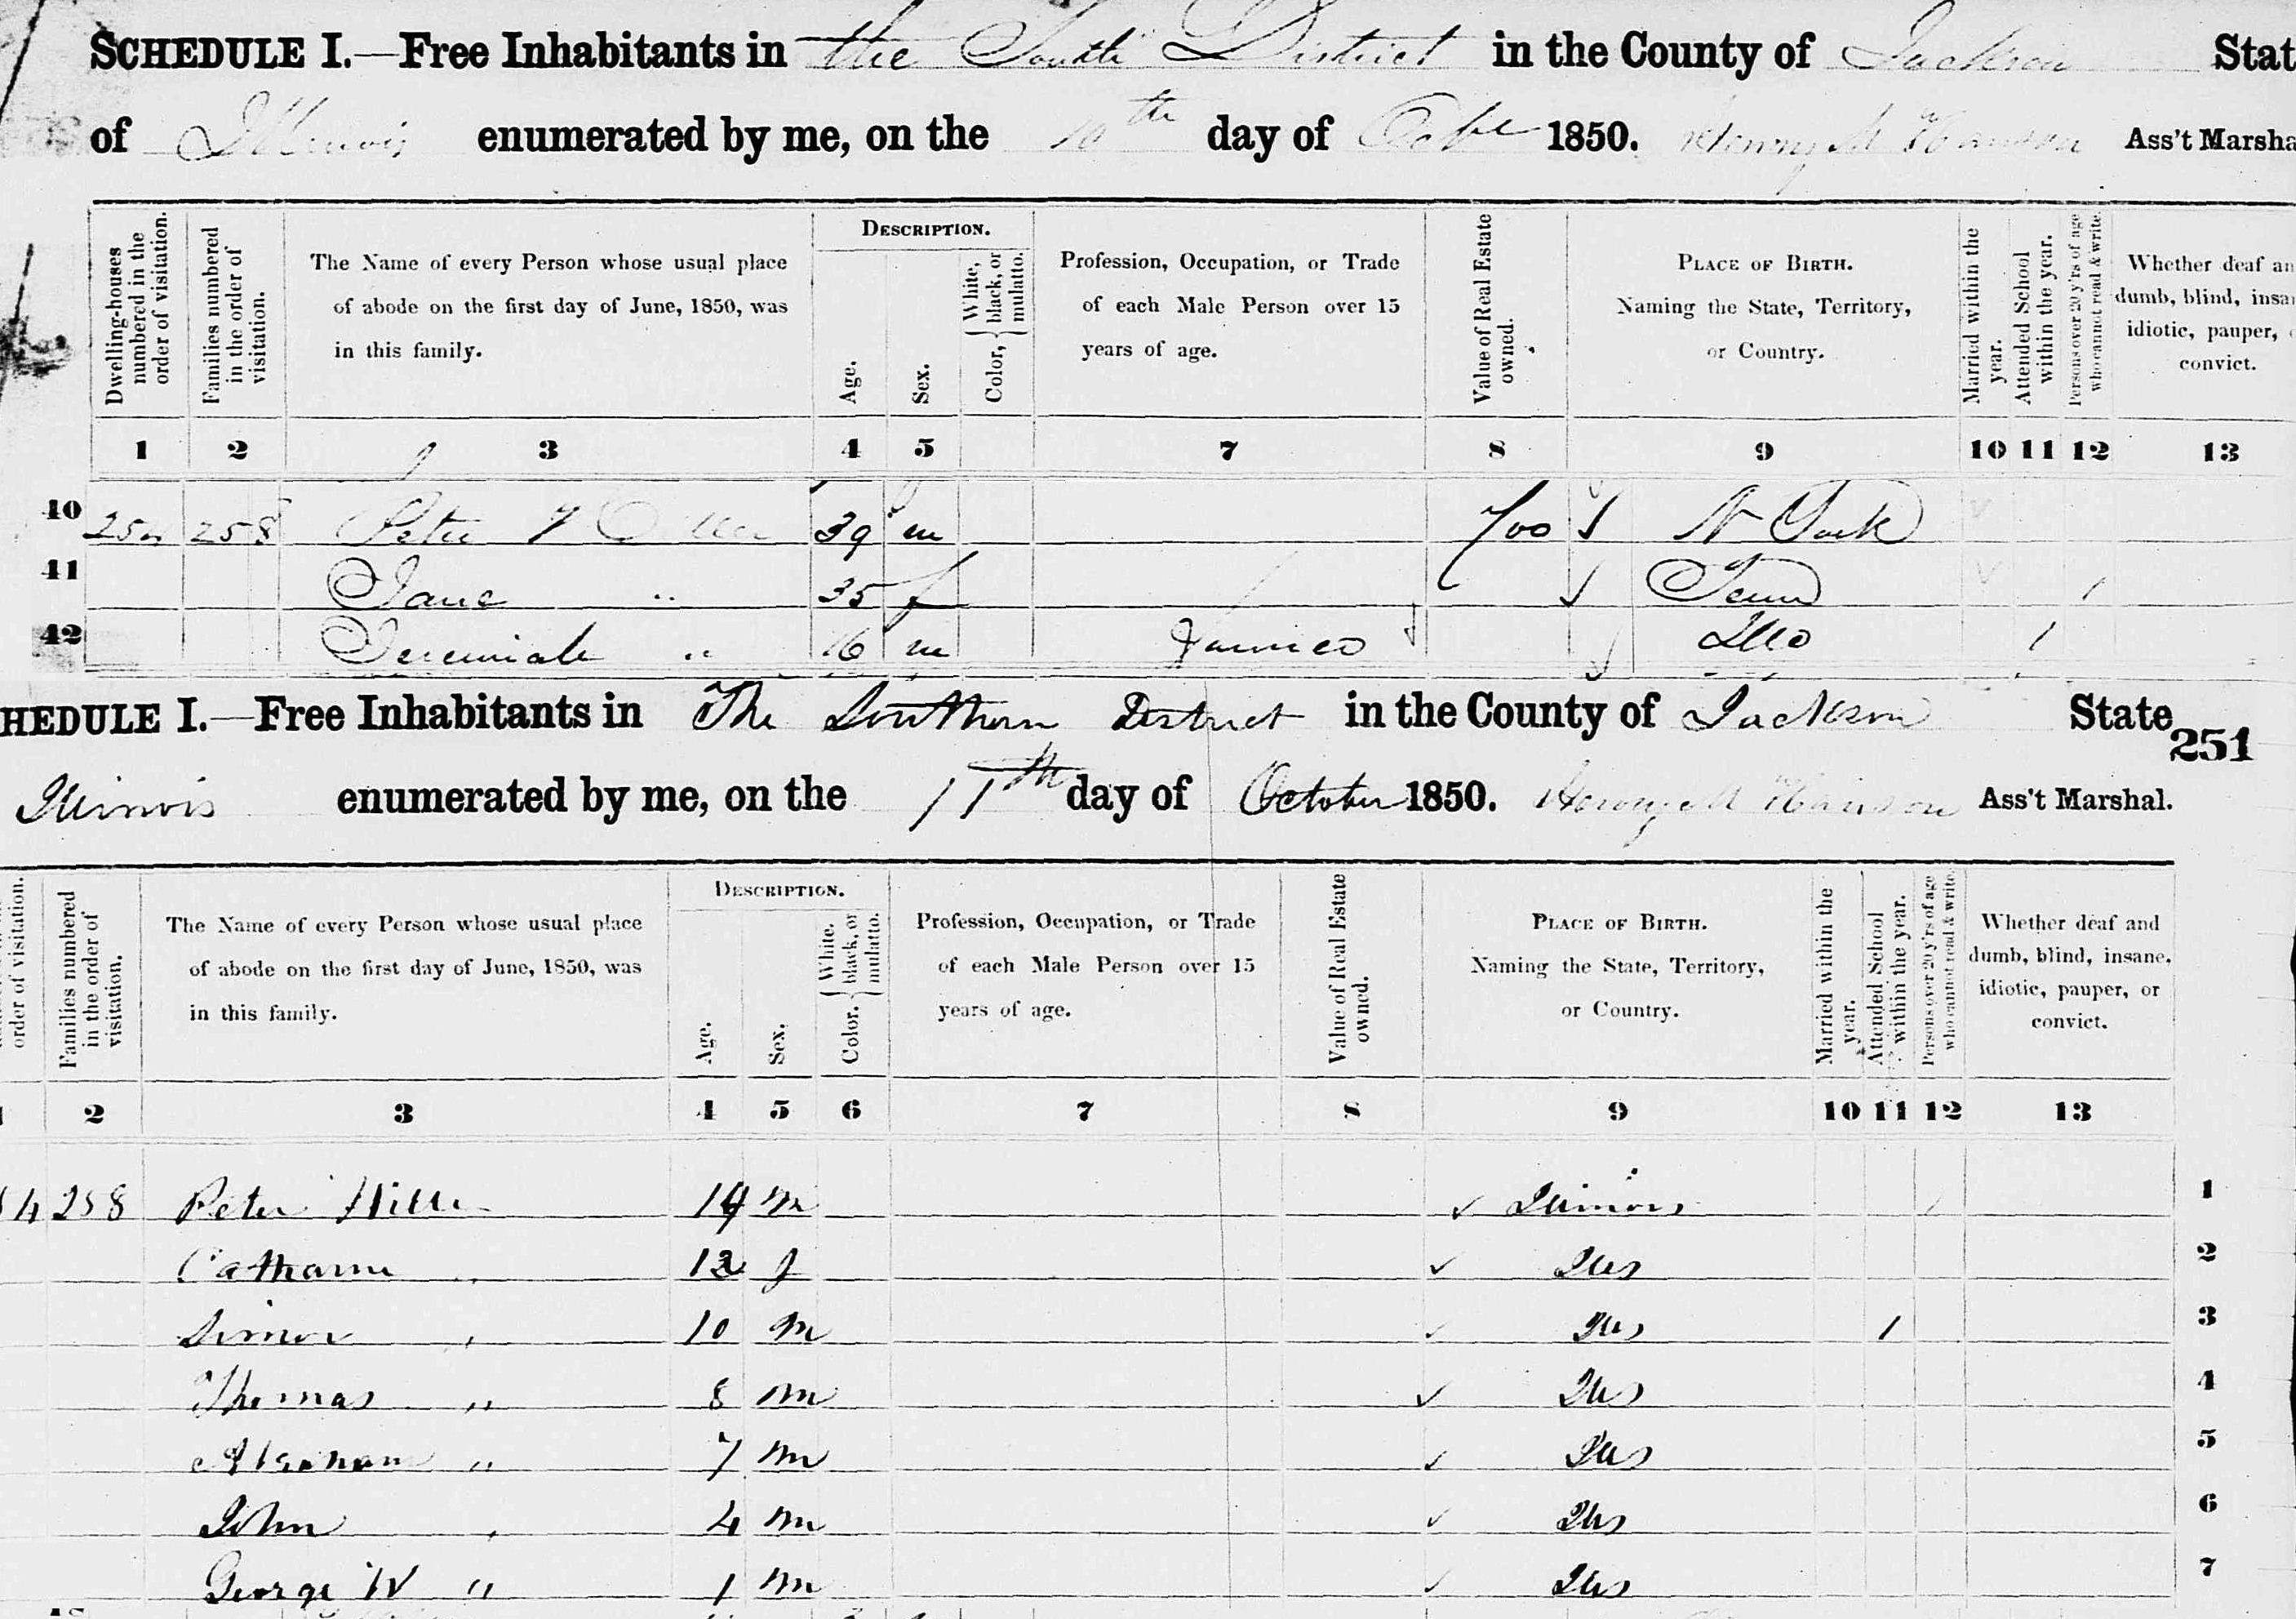 SCHEDULE I.—Free Inhabitants in the South District in the County of Jackson Stat
of Illinois enumerated by me, on the 10th day of Octbr 1850. Henry M Hanson Ass't Marsha
Dwelling-houses numbered in the order of visitation.
Families numbered in the order of visitation.
The Name of every Person whose usual place of abode on the first day of June, 1850, was in this family.
DESCRIPTION.
Age.
Sex.
Color, { White, black, or mulatto.
Profession, Occupation, or Trade of each Male Person over 15 years of age.
Value of Real Estate owned.
PLACE OF BIRTH.
Naming the State, Territory, or Country.
Married within the year.
Attended School within the year.
Persons over 20 y'rs of age who cannot read & write.
Whether deaf an
dumb, blind, insa
idiotic, pauper,
convict.
1 2 3 4 5 7 8 9 10 11 12 13
10 254 258 Peter 39 m 700 N York
41 Jane " 35 f Tenn /
42 Jeremiah " 16 m Illo 1
HEDULE I.—Free Inhabitants in The Southern District in the County of Jackson State
251
Illinois enumerated by me, on the 11th day of October 1850. Henry M Hanson Ass't Marshal.
order of visitation.
Families numbered in the order of visitation.
The Name of every Person whose usual place of abode on the first day of June, 1850, was in this family.
DESCRIPTION.
Age.
Sex.
Color. { White, black, or mulatto.
Profession, Occupation, or Trade of each Male Person over 15 years of age.
Value of Real Estate owned.
PLACE OF BIRTH.
Naming the State, Territory, or Country.
Married within the year.
Attended School within the year.
Persons over 20 y'rs of age who cannot read & write.
Whether deaf and dumb, blind, insane, idiotic, pauper, or convict.
2 3 4 5 6 7 8 9 10 11 12 13
4 258 Peter 14 m Illinois 1
Catharine " 12 f Ills 2
Simon " 10 m Ills 1 3
Thomas " 8 m Ills 4
Abraham " 7 m Ills 5
John " 4 m Ills 6
George W " 1 m Ills 7